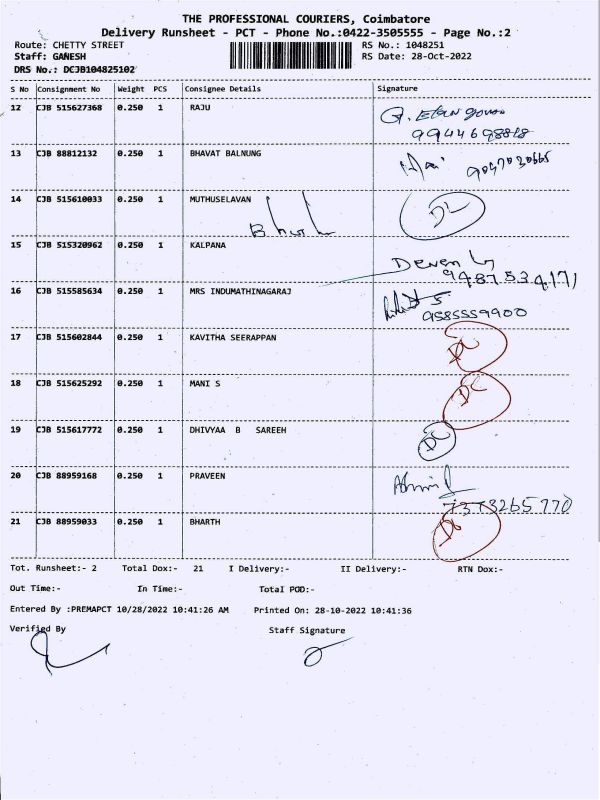 THE PROFESSIONAL COURIERS, Coimbatore
Delivery Runsheet - PCT - Phone No.:0422-3505555 - Page No.:2
Route: CHETTY STREET RS No.: 1048251
Staff: GANESH RS Date: 28-Oct-2022
DRS No.: DCJB104825102
S No Consignment No Weight PCS Consignee Details Signature
12 CJB 515627368 0.250 1 RAJU
9944698818
13 CJB 88812132 0.250 1 BHAVAT BALNUNG
14 CJB 515610033 0.250 1 MUTHUSELAVAN DL
15 CJB 515320962 0.250 1 KALPANA
9487534171
16 CJB 515585634 0.250 1 MRS INDUMATHINAGARAJ
9585559900
17 CJB 515602844 0.250 1 KAVITHA SEERAPPAN DL
18 CJB 515625292 0.250 1 MANI S DL
19 CJB 515617772 0.250 1 DHIVYAA B SAREEH DL
20 CJB 88959168 0.250 1 PRAVEEN
7373265770
21 CJB 88959033 0.250 1 BHARTH DL
Tot. Runsheet:- 2 Total Dox:- 21 I Delivery:- II Delivery:- RTN Dox:-
Out Time:- In Time:- Total POD:-
Entered By :PREMAPCT 10/28/2022 10:41:26 AM Printed On: 28-10-2022 10:41:36
Verified By Staff Signature